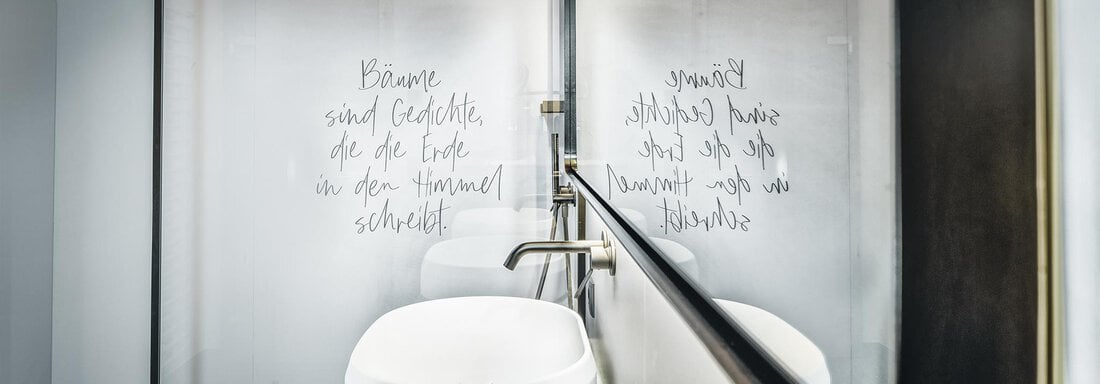 Bäume
sind Gedichte,
die die Erde
in den Himmel
schreibt.